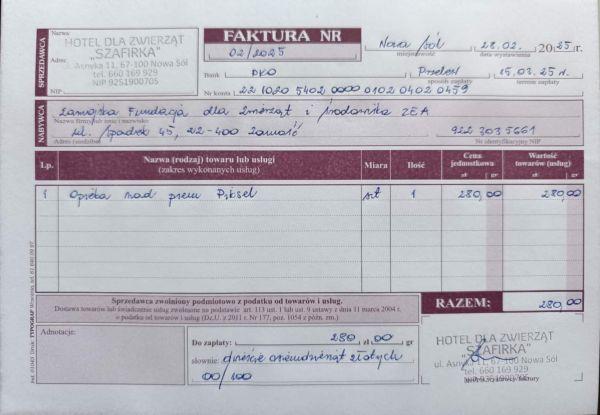 SPRZEDAWCA
Nazwa
HOTEL DLA ZWIERZĄT
"SZAFIRKA"
Adres
ul. Asnyka 11, 67-100 Nowa Sól
tel. 660 169 929
NIP 9251900705
NIP
FAKTURA NR
02/2025
Nowa Sól
miejscowość
28.02. 2025 r.
data wystawienia
Bank PKO
Przelew
sposób zapłaty
15.03.25 r.
termin zapłaty
Nr konta 22 1020 5402 0000 0102 0402 0459
NABYWCA
Zamojska Fundacja dla Zwierząt i Środowiska ZEA
Nazwa firmy lub imię i nazwisko
ul. 45, 22-400 Zamość
Adres (siedziba)
922 303 5661
Nr identyfikacyjny NIP
Lp.
Nazwa (rodzaj) towaru lub usługi
(zakres wykonanych usług)
Miara
Ilość
Cena jednostkowa
zł gr
Wartość towarów (usług)
zł gr
1 Opieka nad psem szt 1 280,00 280,00
Sprzedawca zwolniony podmiotowo z podatku od towarów i usług.
Dostawa towarów lub świadczenie usług zwolnione na podstawie art. 113 ust. 1 lub ust. 9 ustawy z dnia 11 marca 2004 r.
o podatku od towarów i usług (Dz.U. z 2011 r. Nr 177, poz. 1054 z późn. zm.)
RAZEM: 280,00
Adnotacje:
Do zapłaty: 280 zł 00 gr
słownie: dwieście osiemdziesiąt złotych
00/100
HOTEL DLA ZWIERZĄT
"SZAFIRKA"
ul. Asnyka 11, 67-100 Nowa Sól
tel. 660 169 929
TYPOGRAF